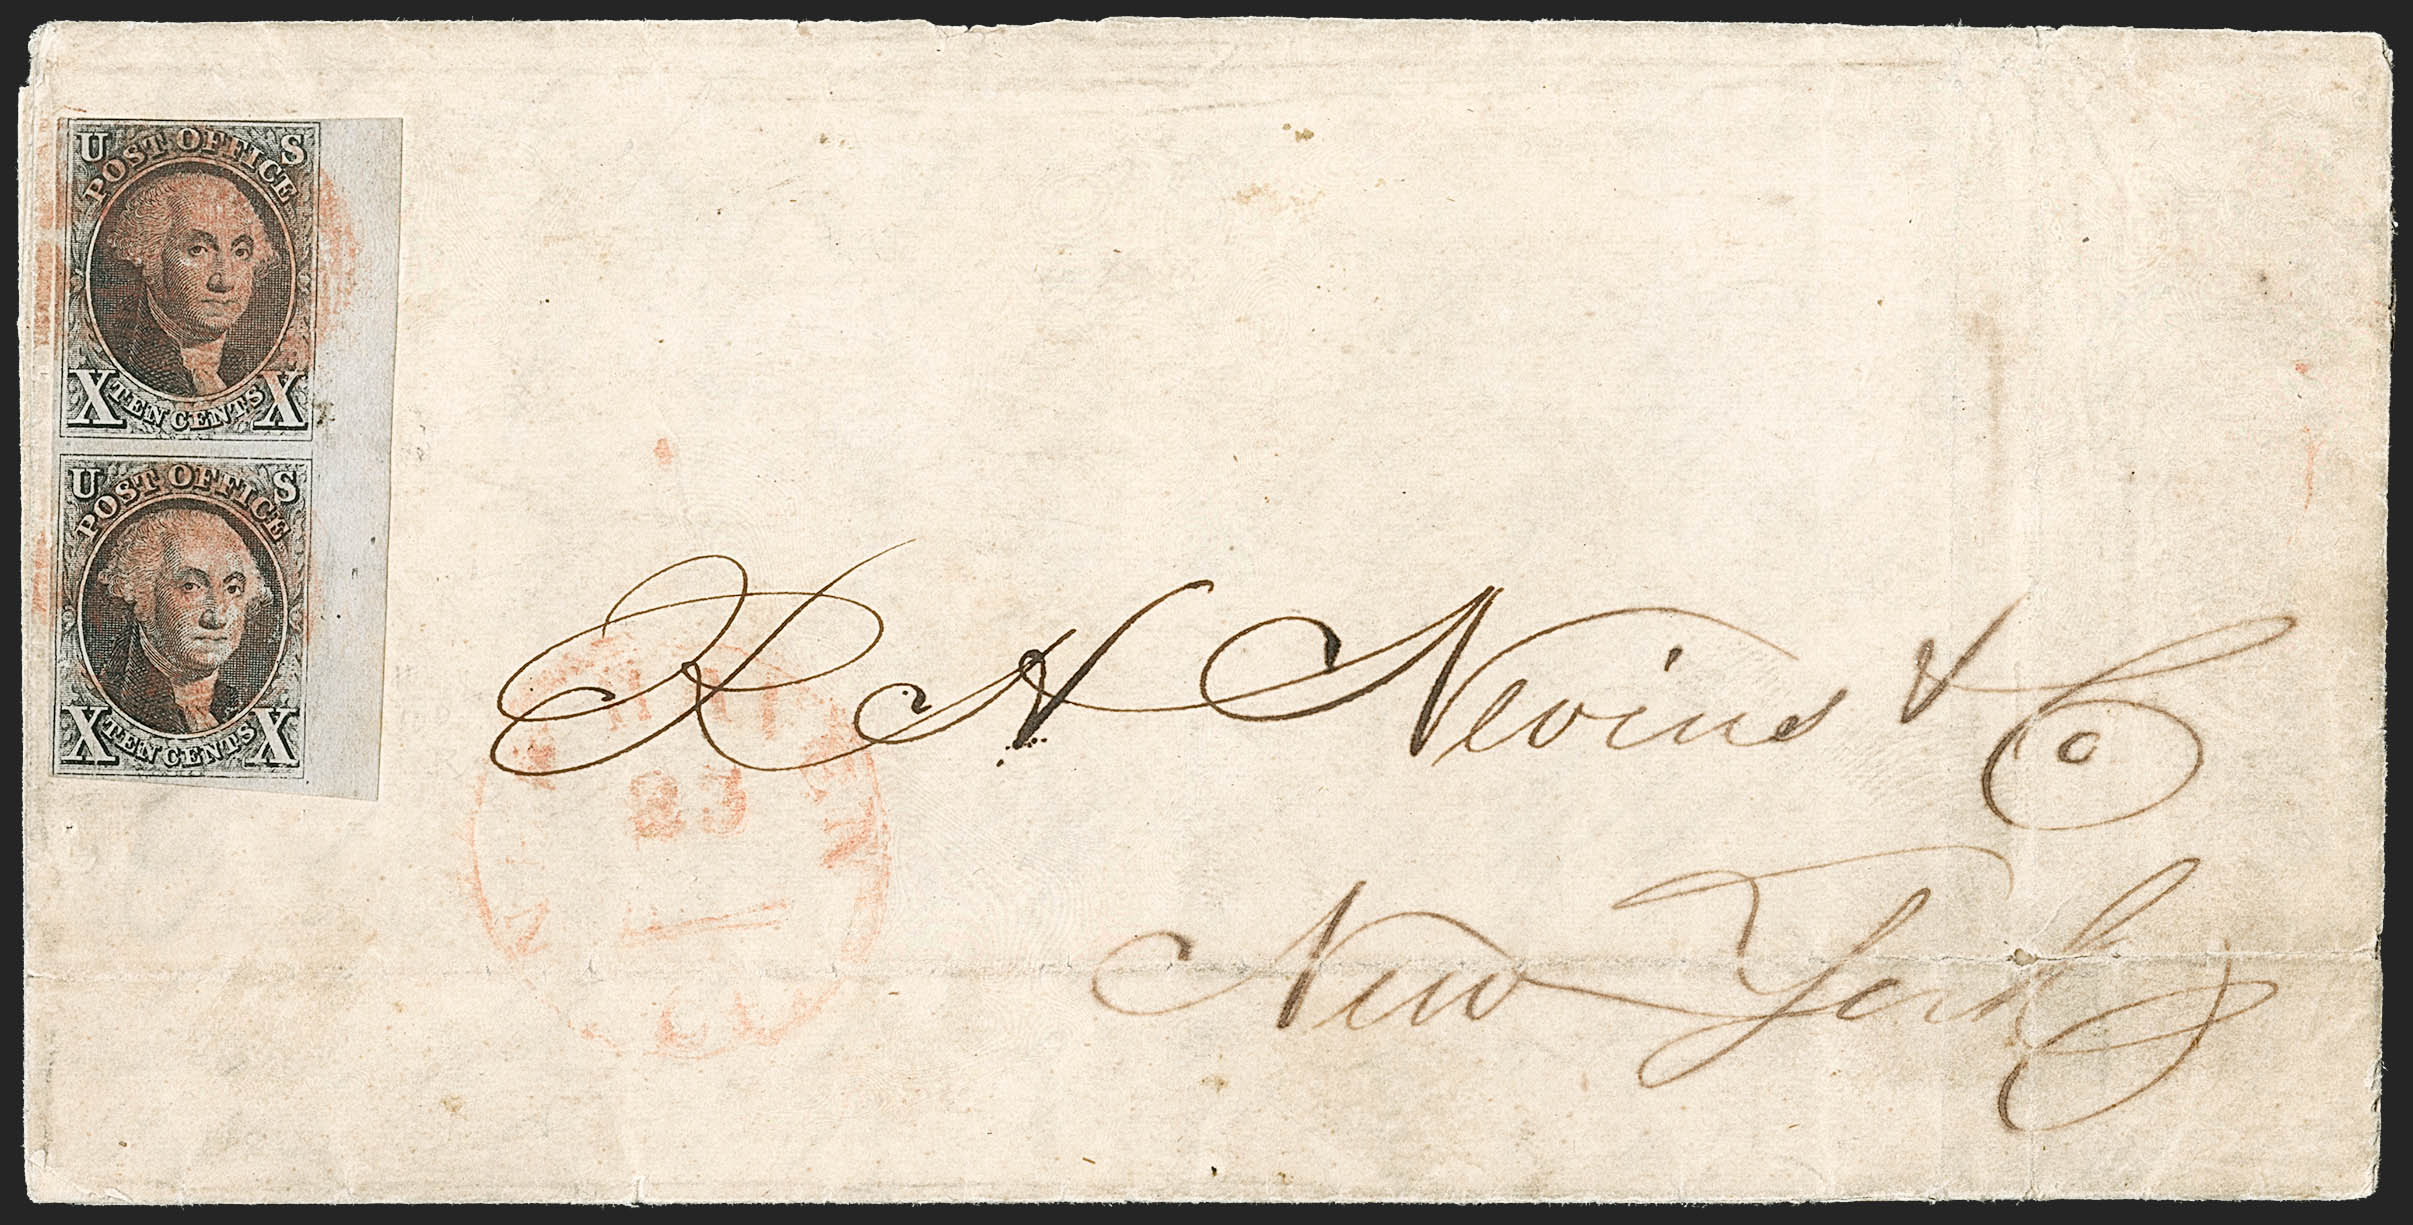 U S
POST OFFICE
X TEN CENTS X
U S
POST OFFICE
X TEN CENTS X
R H Nevins & Co
New York
23